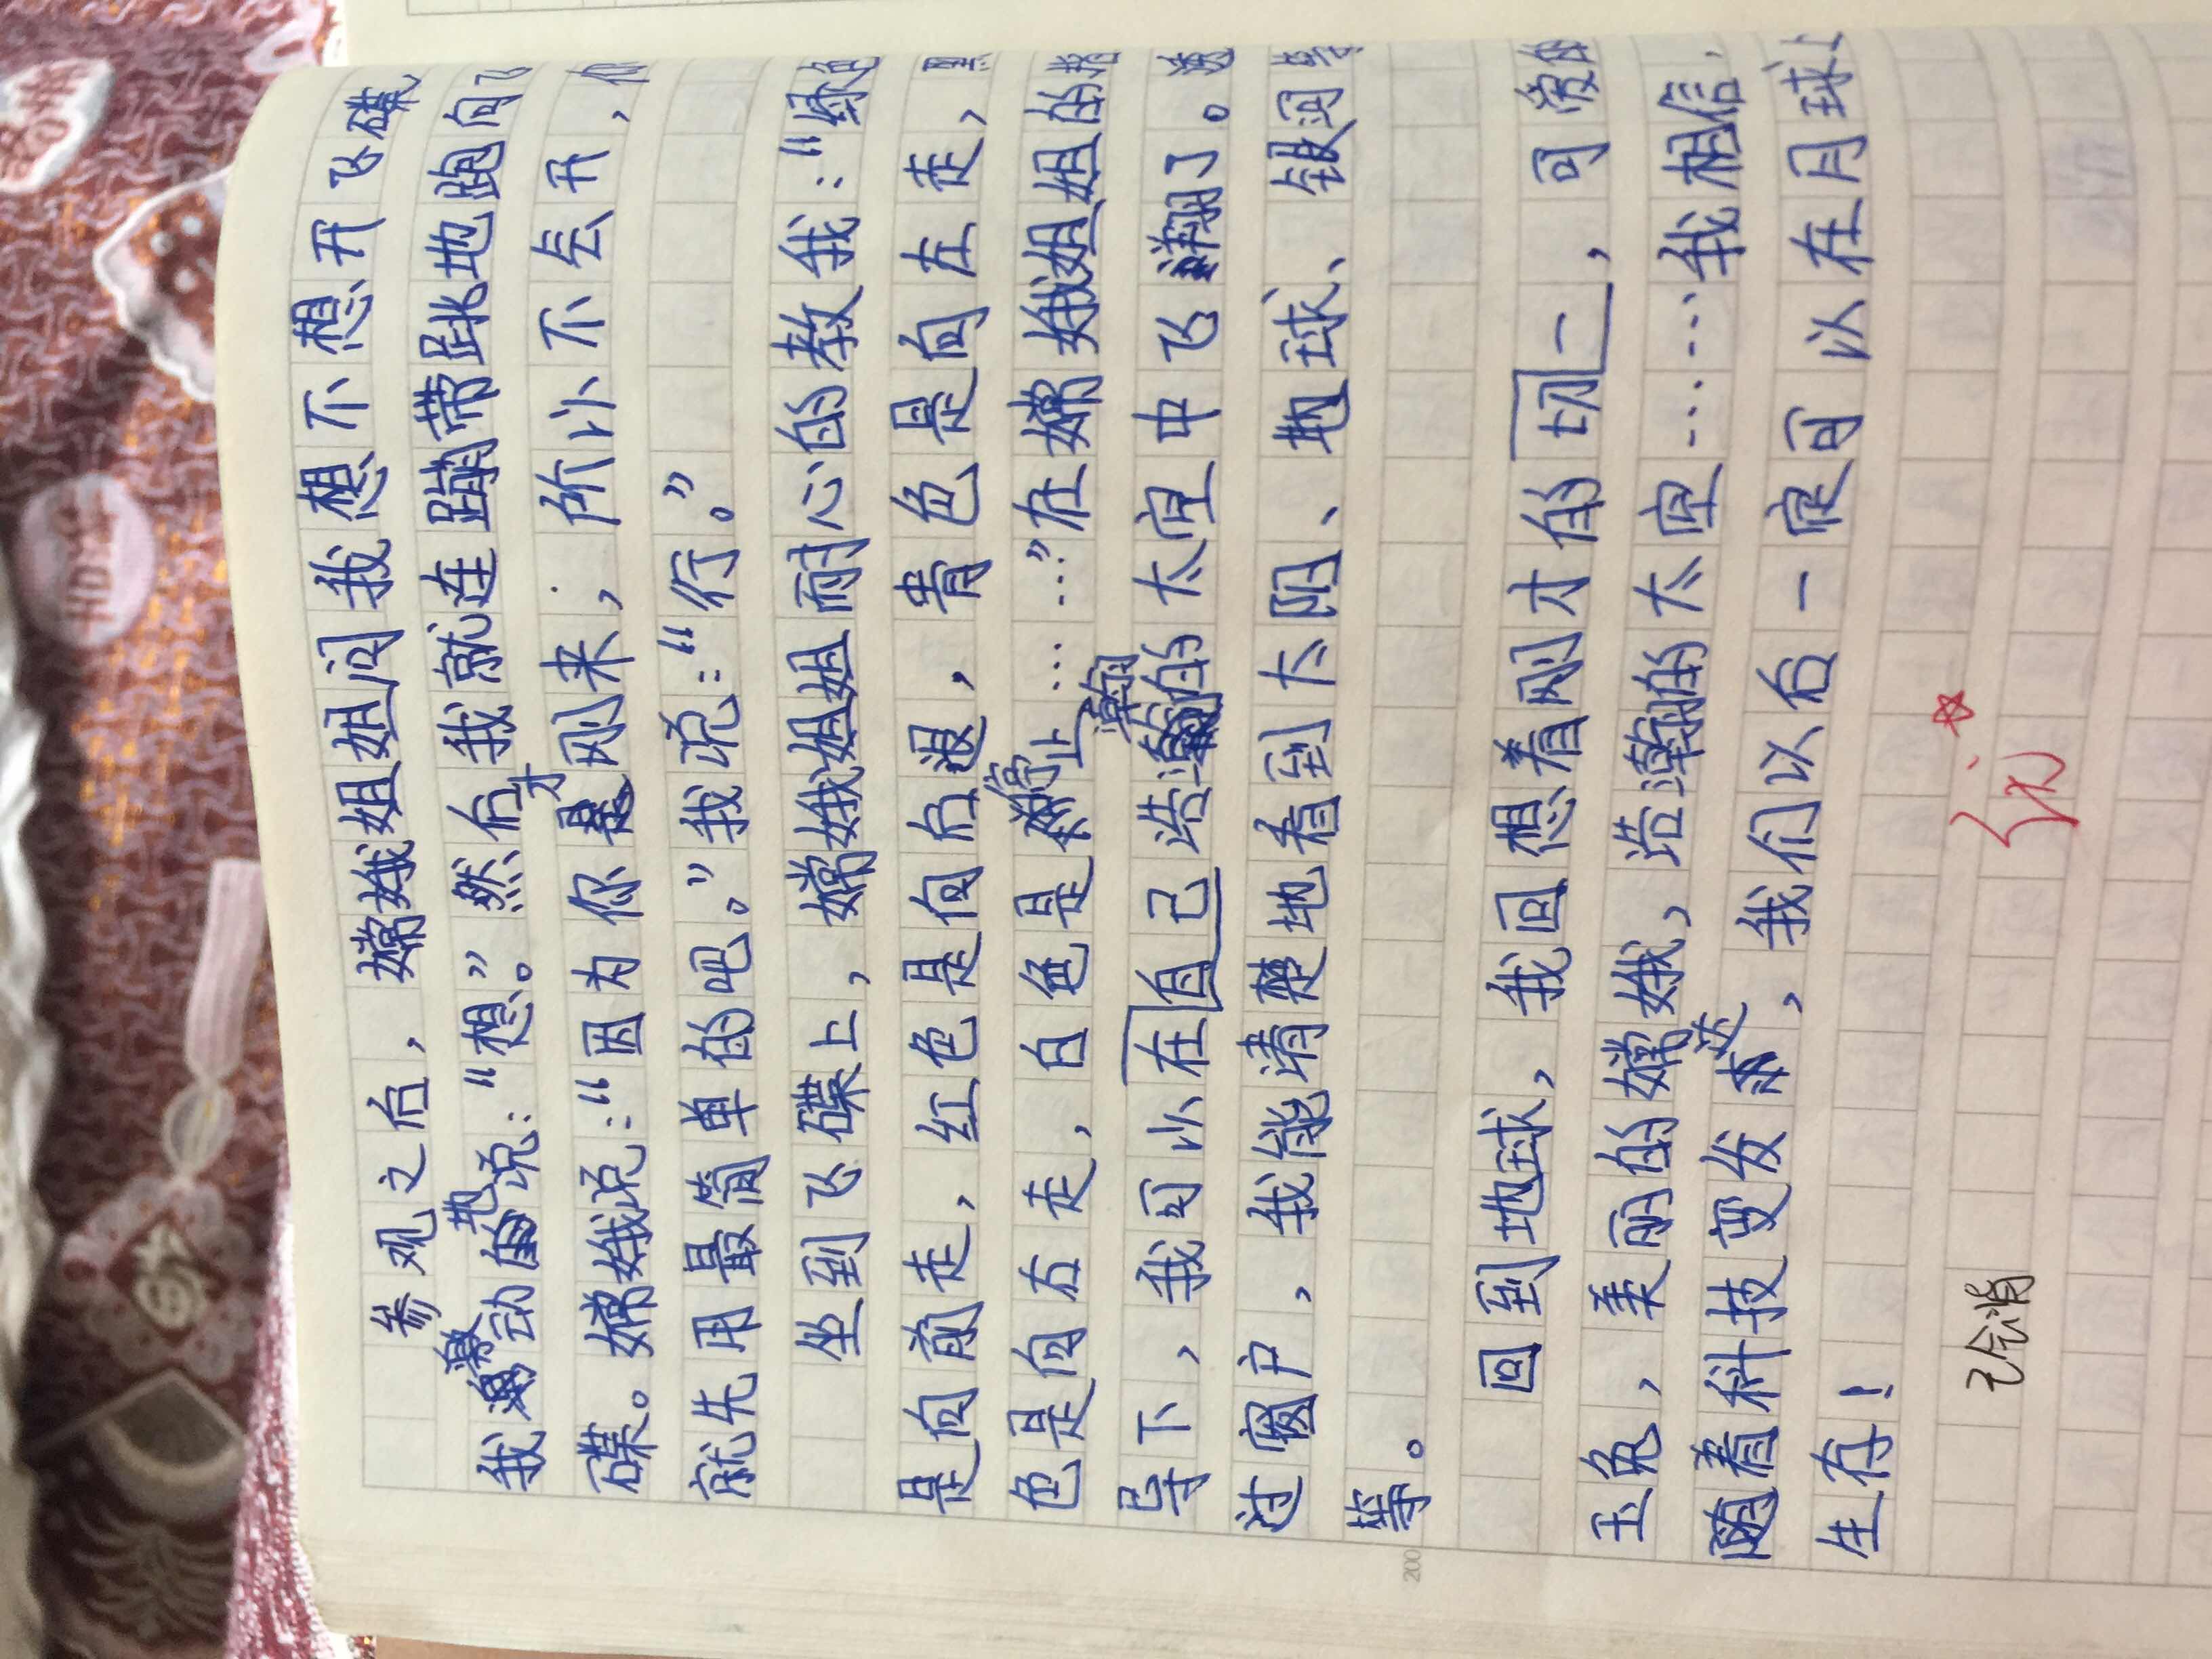 参观之后，嫦娥姐姐问我想不想开飞碟
我激动地说：“想。”然后我就连蹦带跳地跑向飞
碟。嫦娥说：“因为你才刚来，所以不会开，
就先用最简单的吧。”我说：“行。”
坐到飞碟上，嫦娥姐姐耐心的教我：“绿色
是向前走，红色是向后退，青色是向左走，黑
色是向右走，白色是停止……”在嫦娥姐姐的
导下，我可以在自己浩瀚的太空中飞翔了。透
过窗户，我能清楚地看到太阳、地球、银河
等。
回到地球，我回想着刚才的切一，可爱的
玉兔，美丽的嫦娥，浩瀚的太空……我相信，
随着科技变发达，我们以后一定可以在月球上
生存！
已合消
优
200